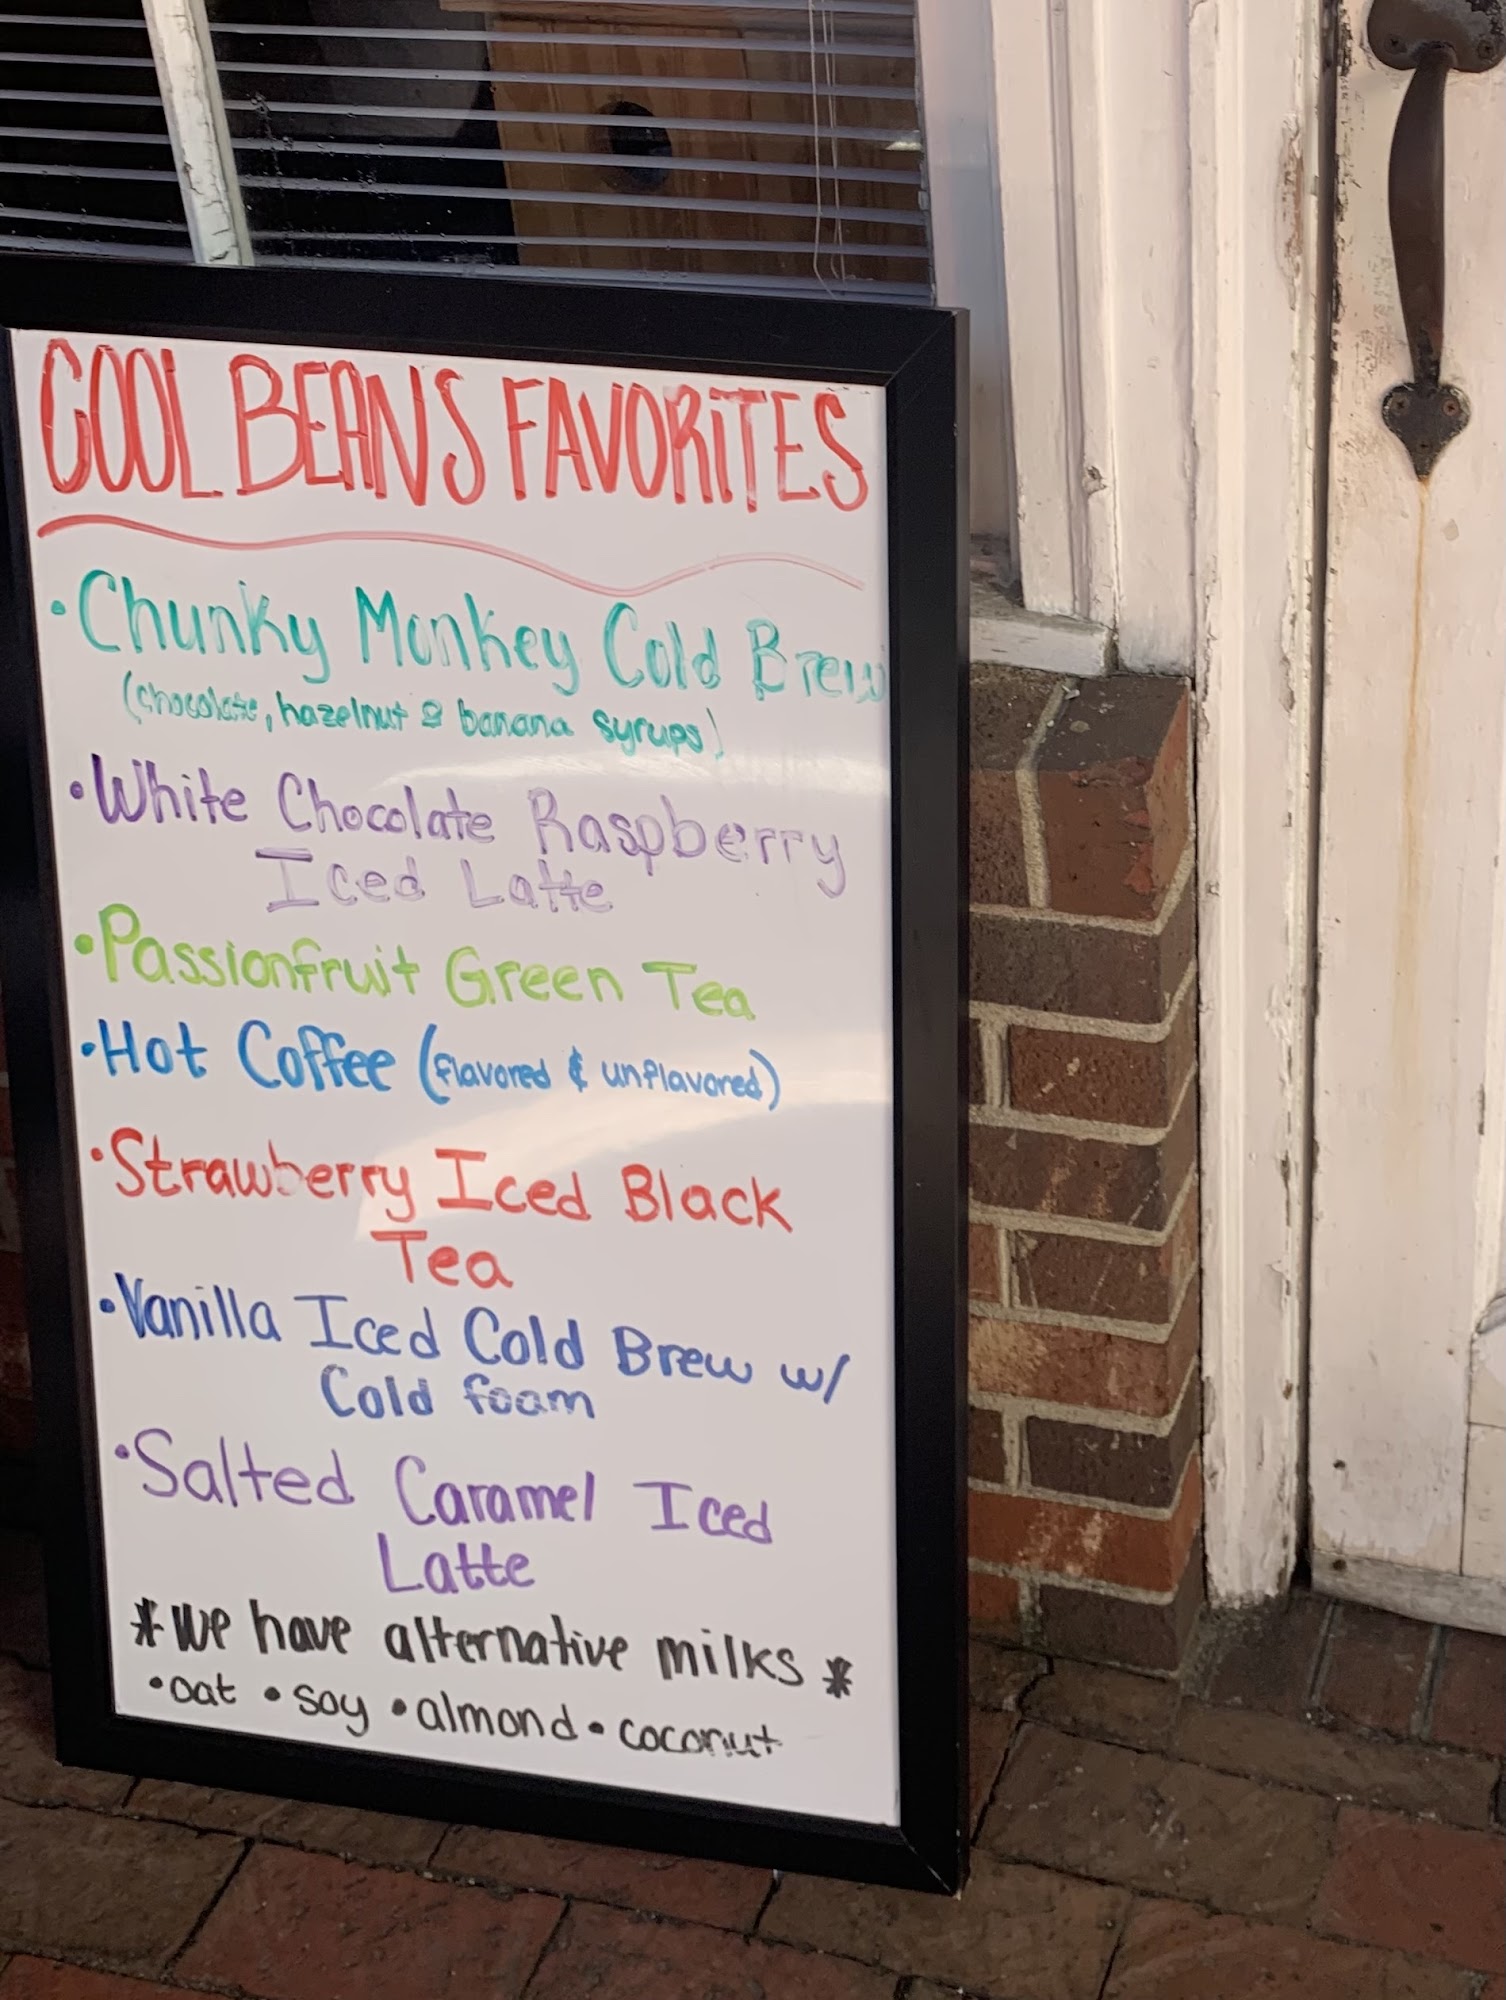 COOL BEANS FAVORiTES
• Chunky Monkey Cold Brew
(chocolate, hazelnut & banana syrups)
• White Chocolate Raspberry
Iced Latte
• Passionfruit Green Tea
• Hot Coffee (flavored & unflavored)
• Strawberry Iced Black
Tea
• Vanilla Iced Cold Brew w/
Cold foam
• Salted Caramel Iced
Latte
* We have alternative milks *
• oat • soy • almond • coconut